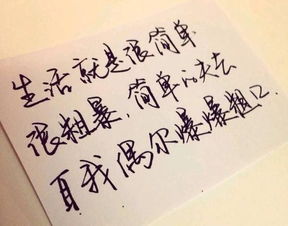 生活就是很简单
很粗暴，简单的失去
自我偶尔爆爆粗口